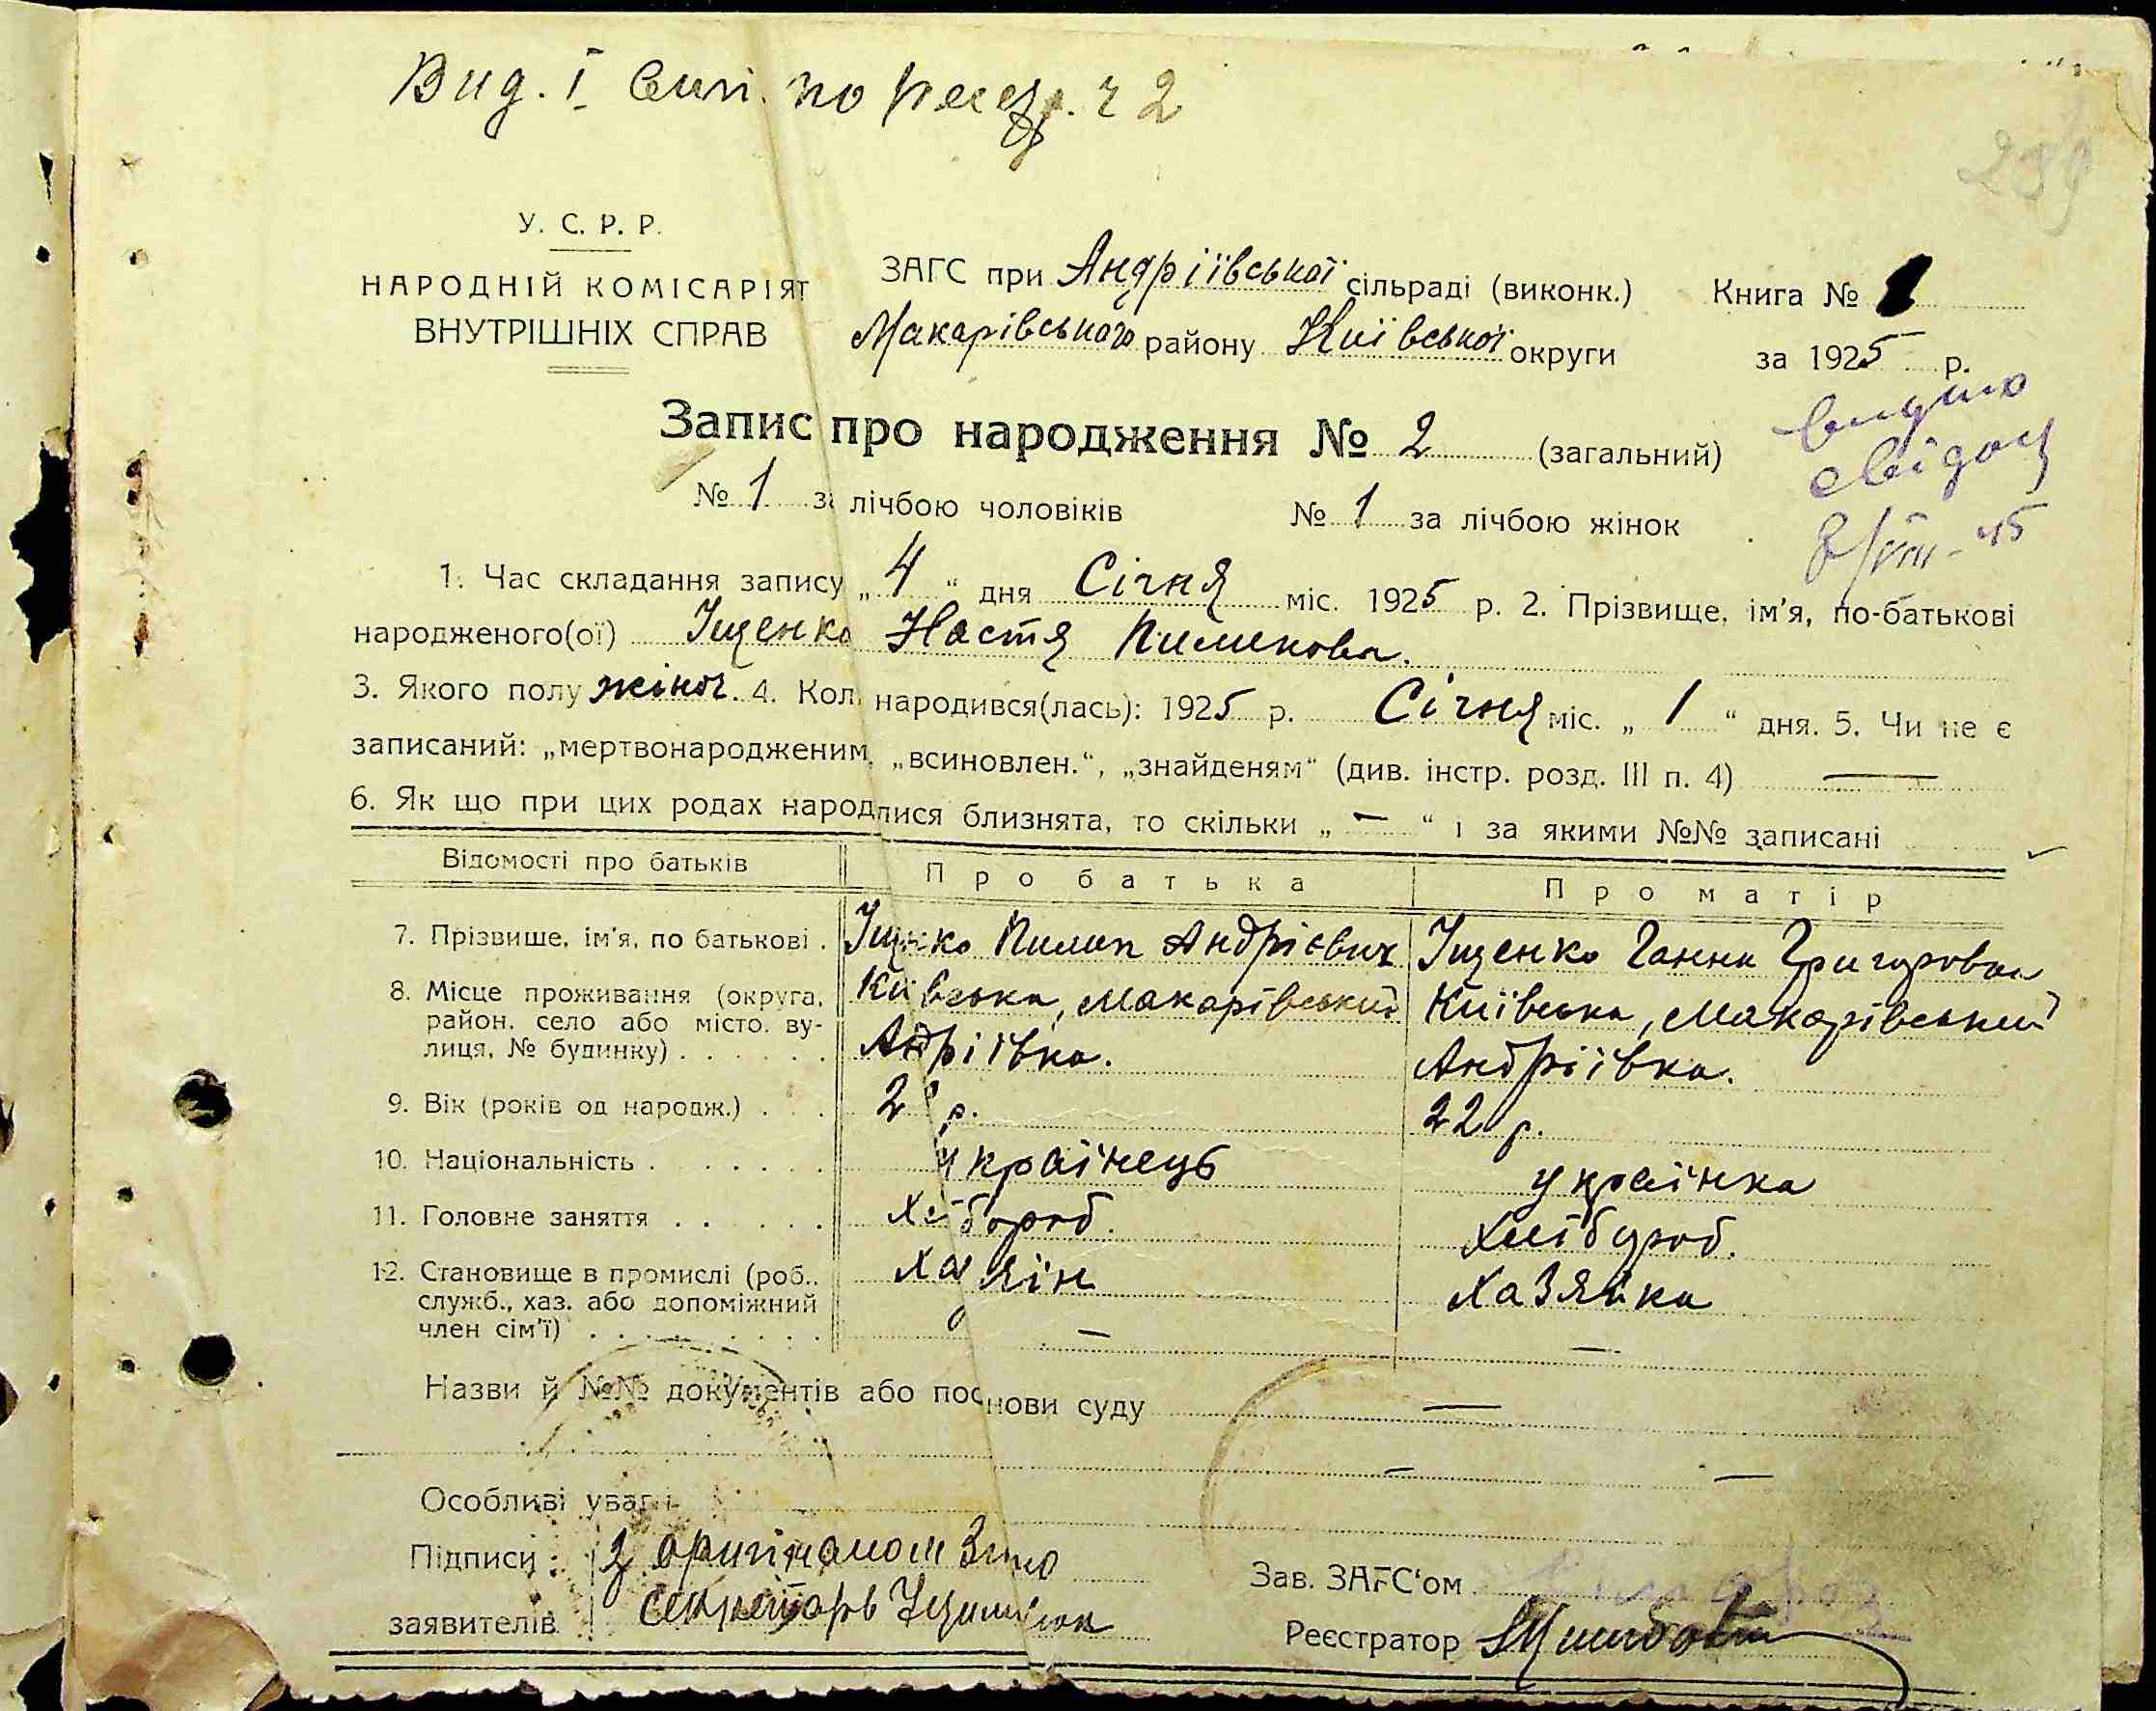 Вид. І вип. по реєстр. ч 2
239
У. С. Р. Р.
НАРОДНІЙ КОМІСАРІЯТ
ВНУТРІШНІХ СПРАВ
ЗАГС при Андріївської сільраді (виконк.) Книга № 1
Макарівського району Київської округи за 1925 р.
видано
свідоц
8/VIII-45
Запис про народження № 2 (загальний)
№ 1 за лічбою чоловіків № 1 за лічбою жінок
1. Час складання запису „4“ дня Січня міс. 1925 р. 2. Прізвище, ім'я, по-батькові
народженого(ої) Іщенко Настя Пилипова.
3. Якого полу жіноч. 4. Кол народився(лась): 1925 р. Січня міс. „1“ дня. 5. Чи не є
записаний: „мертвонародженим, „всиновлен.“, „знайденям“ (див. інстр. розд. III п. 4) —
6. Як що при цих родах народлися близнята, то скільки „—“ і за якими №№ записані
Відомості про батьків Про батька Про матір
7. Прізвище, ім'я, по батькові . Іщнко Пилип Андрієвич Іщенко Ганна Григоровна
8. Місце проживання (округа, Київська, Макарівський Київська, Макарівський
район, село або місто, ву-
лиця, № будинку) . . . . . . Адріївка. Андріївка.
9. Вік (років од народж.) . . . 2 р. 22 р.
10. Національність . . . . . . . українець українка
11. Головне заняття . . . . . . хібороб. хлібороб.
12. Становище в промислі (роб., хаяін хазяйка
служб., хаз. або допоміжний
член сім'ї) . . . . . . . . . — —
Назви й №№ документів або поснови суду —
— —
Особливі уваги
Підписи з оригіналом згідно
заявителів секретарь
Зав. ЗАГС'ом
Реєстратор